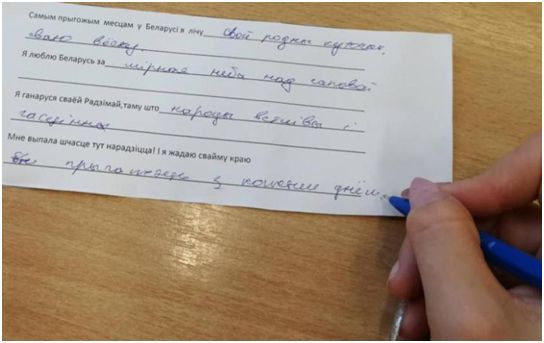 Самым прыгожым месцам у Беларусі я лічу свой родны куточак,
сваю вёску.
Я люблю Беларусь за мірнае неба над галавой
Я ганаруся сваёй Радзімай,таму што народы ветлівы і
гасцінны
Мне выпала шчасце тут нарадзіцца! І я жадаю свайму краю
з кожным днём.